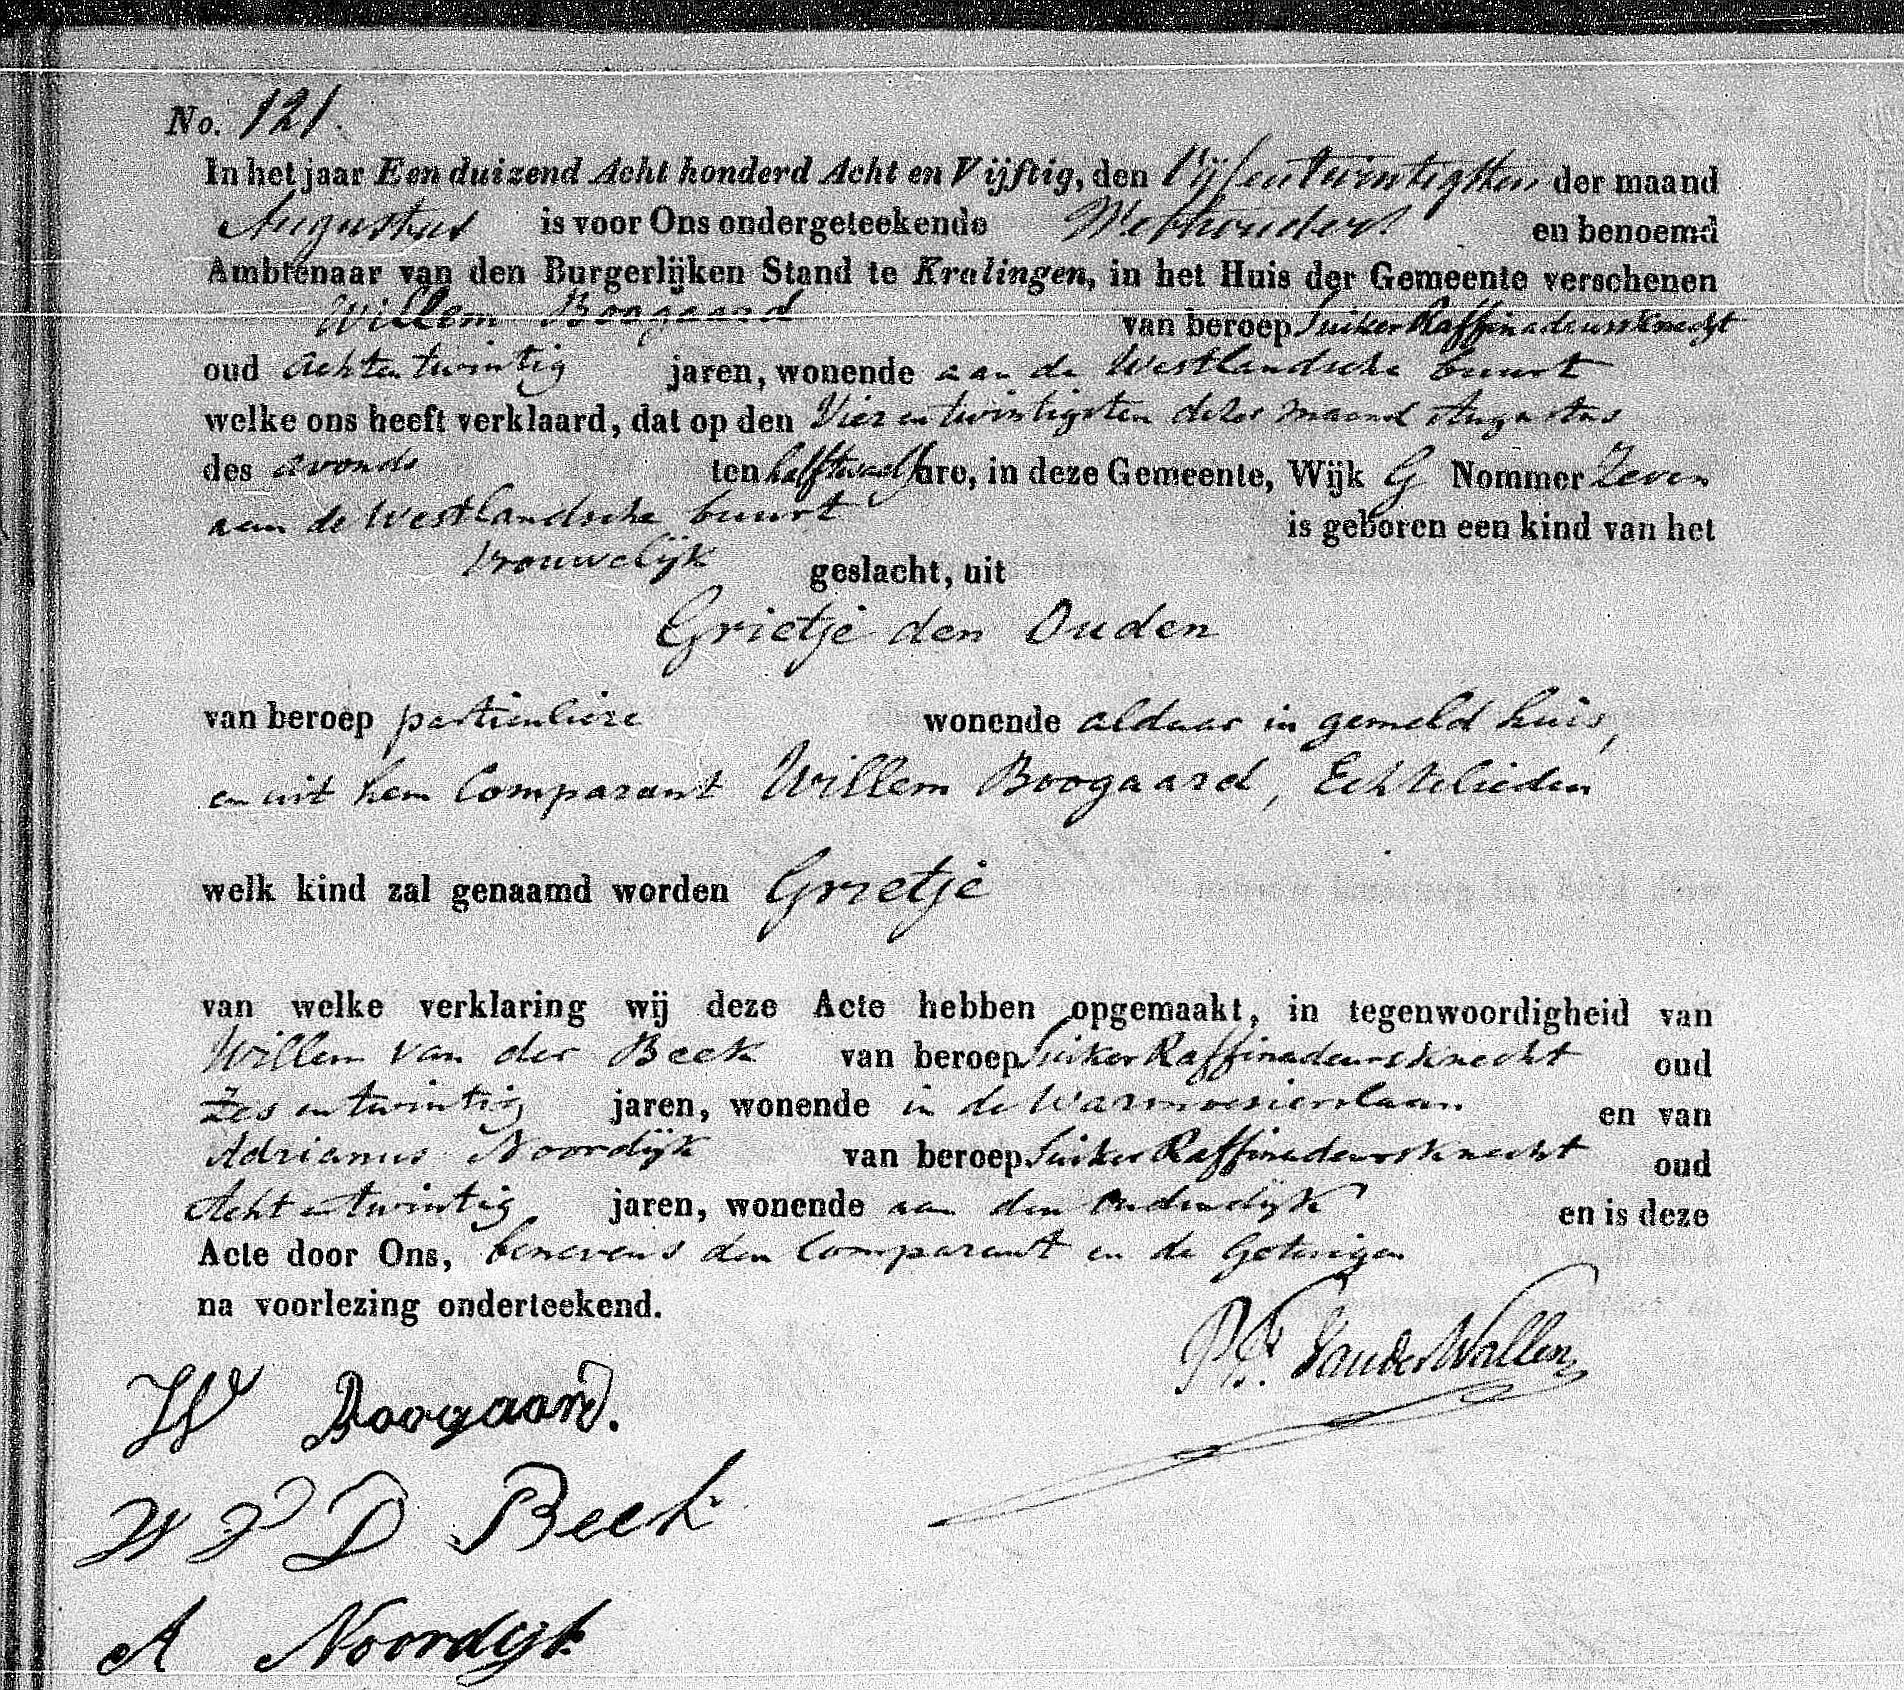 No. 121.
In het jaar Een duizend Acht honderd Acht en Vijftig, den Vijfentwintigsten der maand
Augustus is voor Ons ondergeteekende Wethouder en benoemd
Ambtenaar van den Burgerlijken Stand te Kralingen, in het Huis der Gemeente verschenen
Willem Boogaard van beroep Suiker Raffinadeursknecht
oud achtentwintig jaren, wonende aan de Westlandsche buurt
welke ons heeft verklaard, dat op den Vierentwintigsten dezer maand Augustus
des avonds ten half twaalf ure, in deze Gemeente, Wijk G Nommer Zeven
aan de Westlandsche buurt is geboren een kind van het
vrouwelijk geslacht, uit
Grietje den Ouden
van beroep particuliere wonende aldaar in gemeld huis,
en uit hem Comparant Willem Boogaard, Echtelieden
welk kind zal genaamd worden Grietje
van welke verklaring wij deze Acte hebben opgemaakt, in tegenwoordigheid van
Willem van der Beek van beroep Suiker Raffinadeursknecht oud
Zes en twintig jaren, wonende in de Warmoezierslaan en van
Adrianus Noordijk van beroep Suiker Raffinadeursknecht oud
Acht en twintig jaren, wonende aan den Oudendijk en is deze
Acte door Ons, benevens den Comparant en de Getuigen
na voorlezing onderteekend.
P.F. van der Wallen
W Boogaard.
W V D Beek
A Noordijk